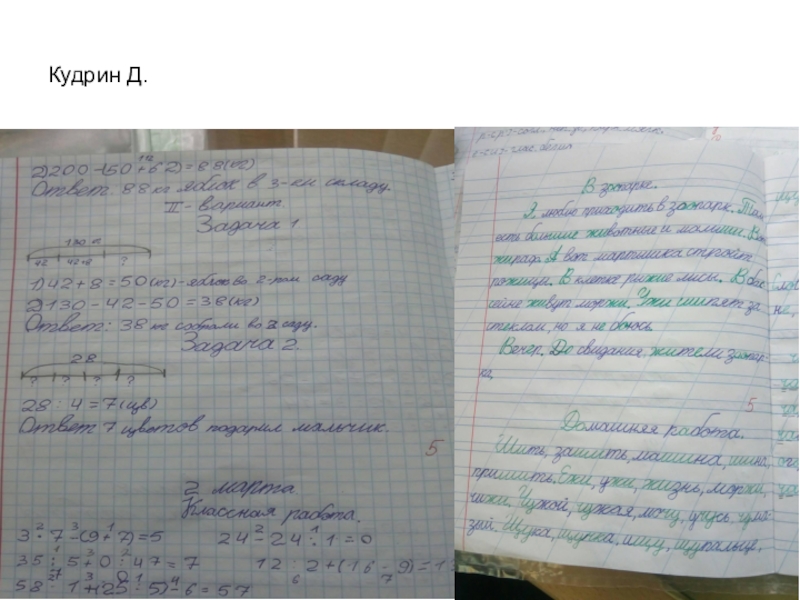 Кудрин Д.
2)200-(50+62)=88(кг)
Ответ: 88 кг яблок в 3-ем складу.
II - вариант.
Задача 1
130 кг
42 42+8 ?
1)42+8=50(кг)-яблок во 2-том саду
2)130-42-50=38(кг)
Ответ: 38 кг собрали во саду.
Задача 2
28
? ? ? ?
28 : 4 = 7(цв)
Ответ 7 цветов подарил мальчик.
5
2 марта.
Классная работа.
3 · 7 - (9+7)=5 24 - 24 : 1 = 0
35 : 5 + 0 : 47 = 7 12 : 2 + (16 - 9) = 13
58 · 1 + (25 : 5) - 6 = 57
В зоопарке.
Я люблю приходить в зоопарк. Там
есть большие животные и малыши. Вот
жираф. А вот мартышка строит
рожицы. В клетке рыжие лисы. В бас
сейне живут моржи. Ужи шипят за
стеклом, но я не боюсь.
Вечер. До свидания, жители зоопар-
ка.
5
Домашняя работа.
Шить, зашить, машина, шина,
пришить. Ежи, ужи, жизнь, моржи,
чижи. Чужой, чужая,
Щука, щупка, ищу, щупальце,